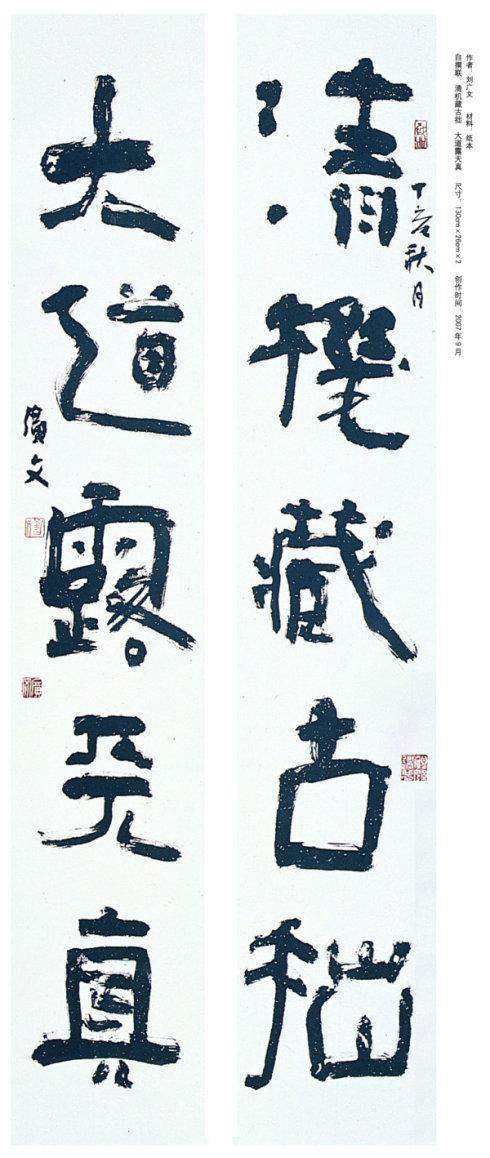 作者：刘广文　材料：纸本
自撰联：清机藏古拙　大道露天真　尺寸：130cm×26cm×2　创作时间：2007年9月
丁亥秋月
清機藏古拙
大道露天真
廣文